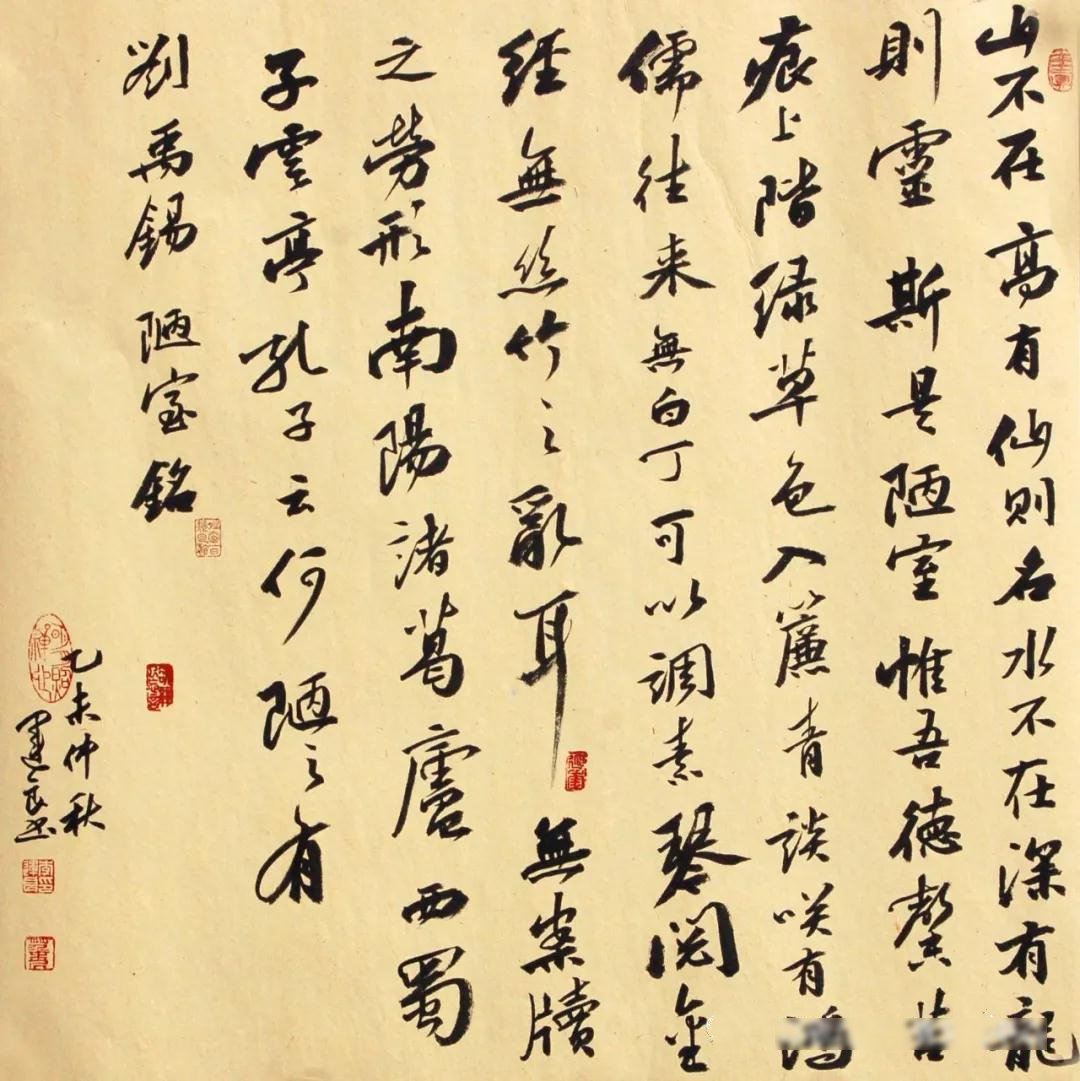 山不在高有仙则名水不在深有龍
則靈斯是陋室惟吾德馨苔
痕上階绿草色入簾青談咲有鴻
儒往来無白丁可以調素琴閱金
經無丝竹之亂耳無案牘
之勞形南陽諸葛廬西蜀
子雲亭孔子云何陋之有
劉禹錫陋室銘
乙未仲秋
建良书